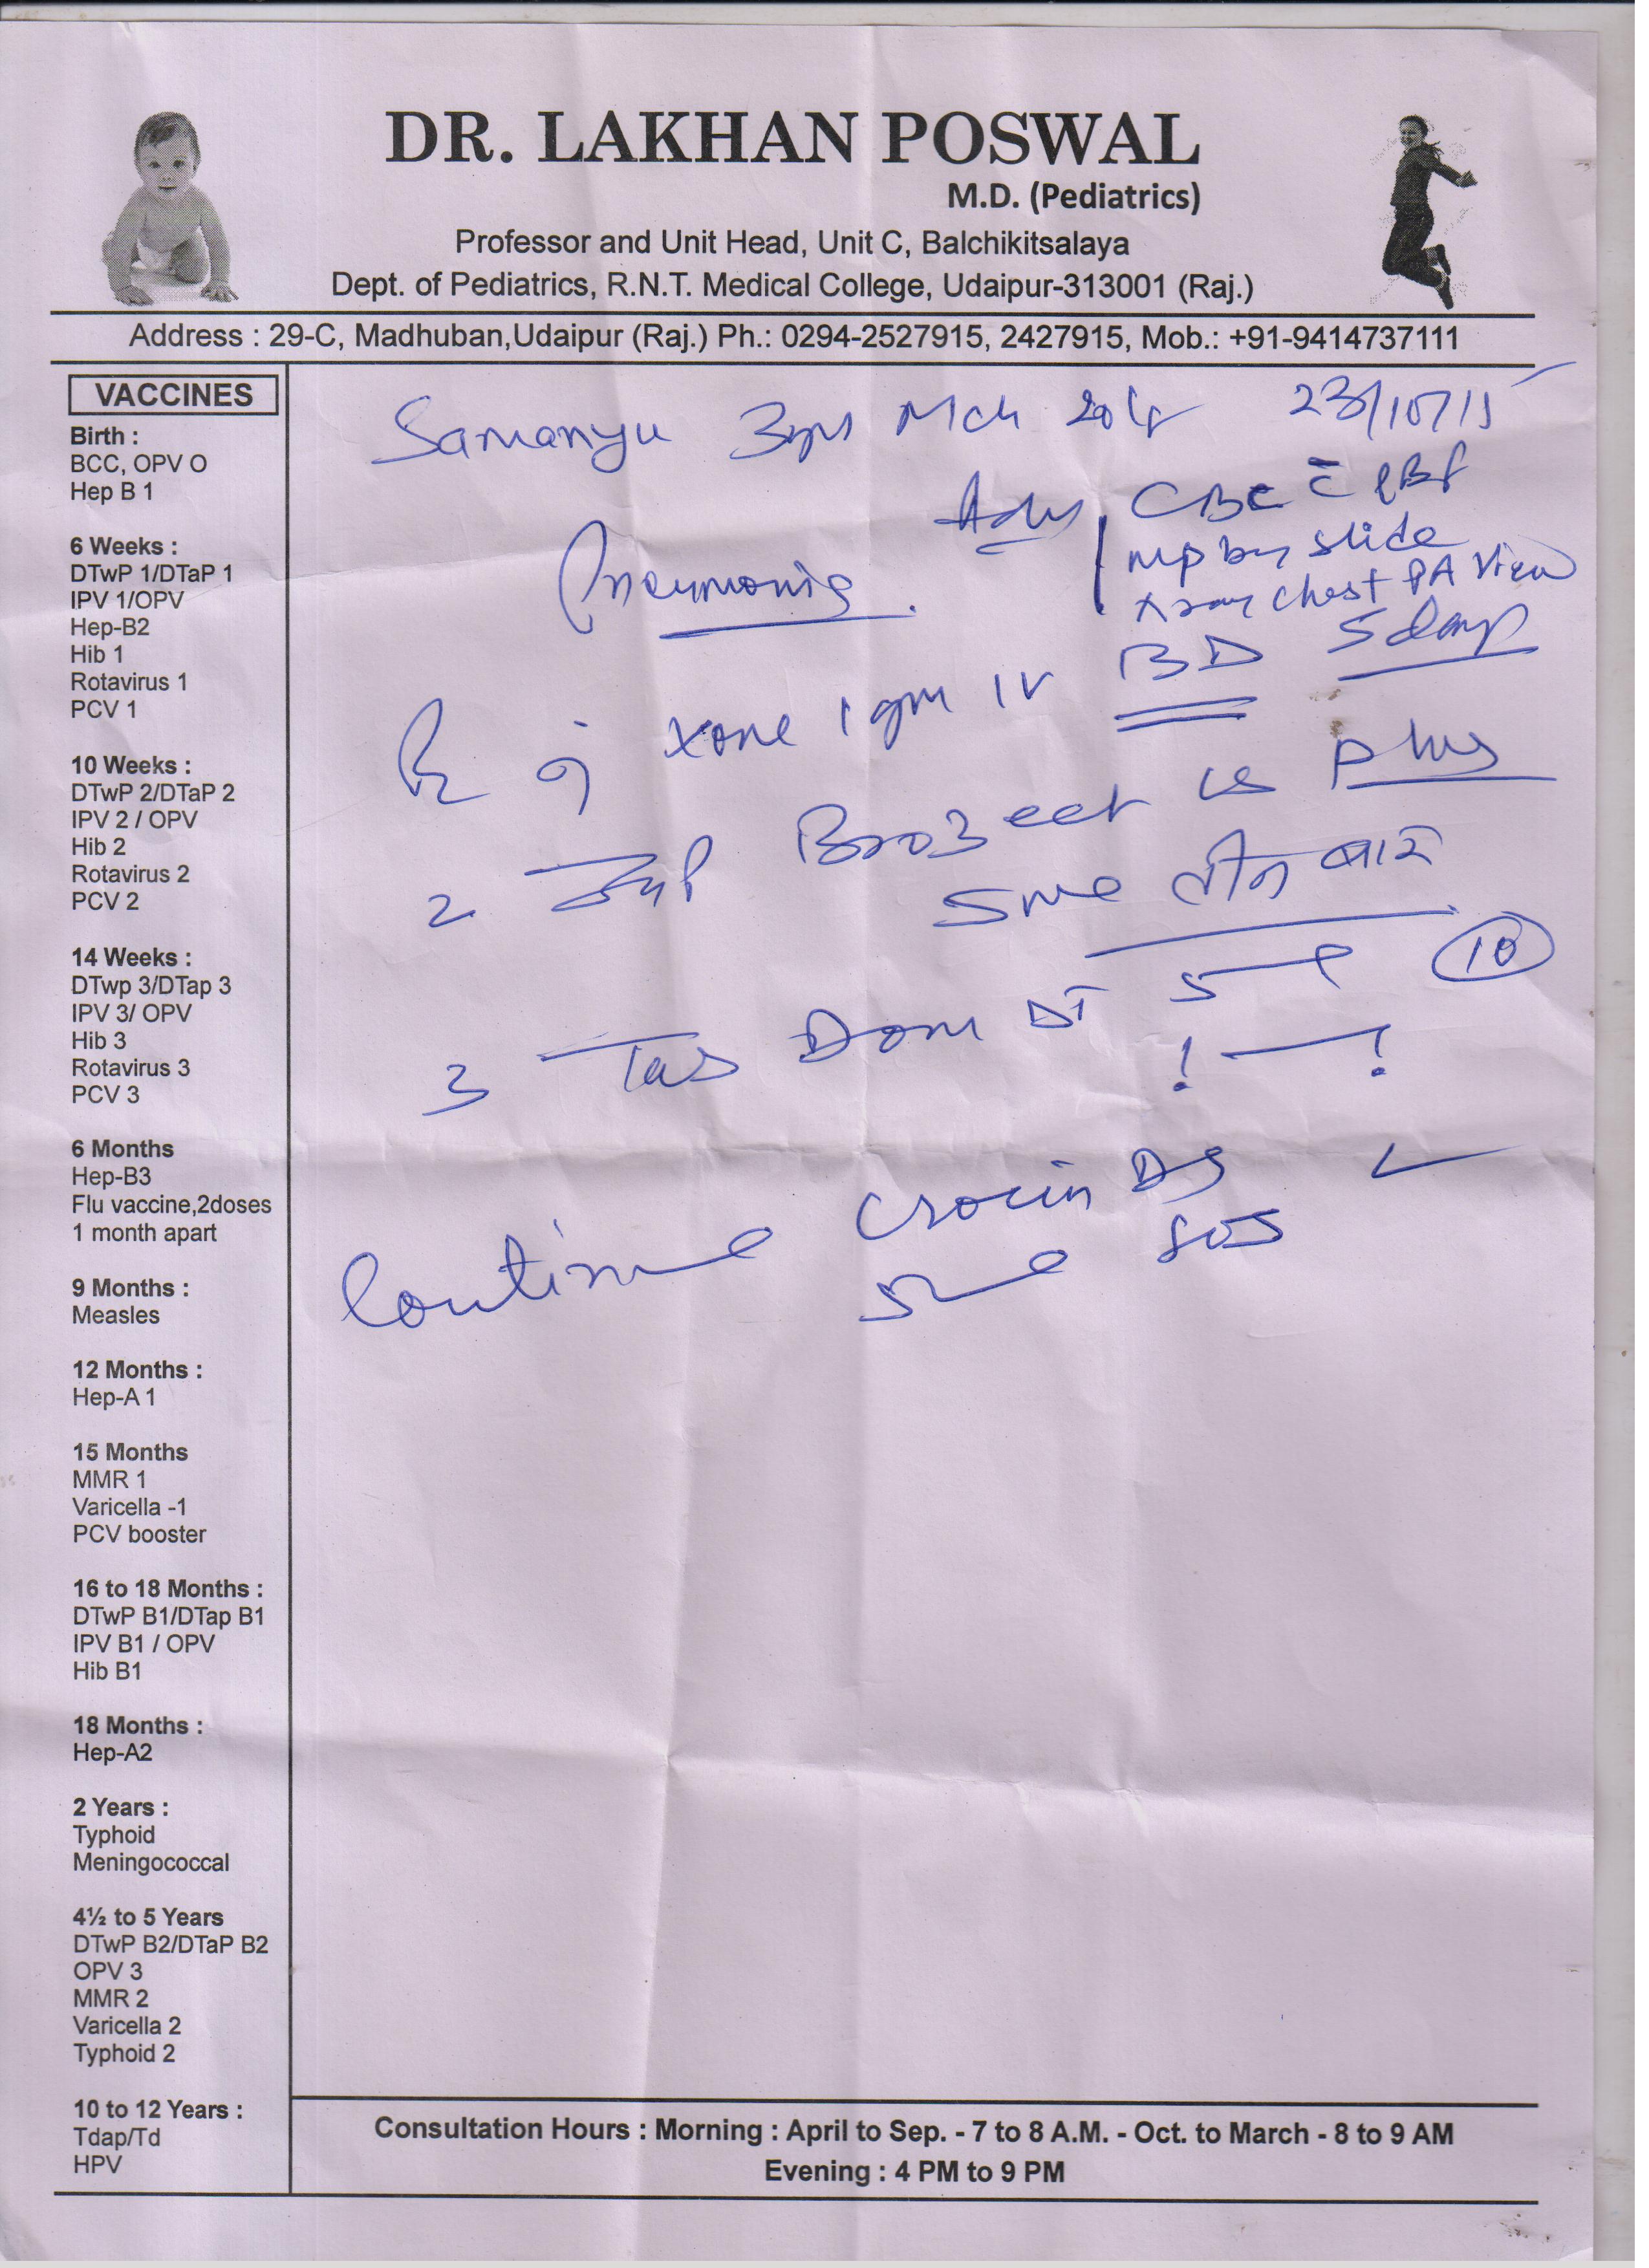 DR. LAKHAN POSWAL
M.D. (Pediatrics)
Professor and Unit Head, Unit C, Balchikitsalaya
Dept. of Pediatrics, R.N.T. Medical College, Udaipur-313001 (Raj.)
Address : 29-C, Madhuban,Udaipur (Raj.) Ph.: 0294-2527915, 2427915, Mob.: +91-9414737111
VACCINES
Birth :
BCC, OPV O
Hep B 1
6 Weeks :
DTwP 1/DTaP 1
IPV 1/OPV
Hep-B2
Hib 1
Rotavirus 1
PCV 1
10 Weeks :
DTwP 2/DTaP 2
IPV 2 / OPV
Hib 2
Rotavirus 2
PCV 2
14 Weeks :
DTwp 3/DTap 3
IPV 3/ OPV
Hib 3
Rotavirus 3
PCV 3
6 Months
Hep-B3
Flu vaccine,2doses
1 month apart
9 Months :
Measles
12 Months :
Hep-A 1
15 Months
MMR 1
Varicella -1
PCV booster
16 to 18 Months :
DTwP B1/DTap B1
IPV B1 / OPV
Hib B1
18 Months :
Hep-A2
2 Years :
Typhoid
Meningococcal
4½ to 5 Years
DTwP B2/DTaP B2
OPV 3
MMR 2
Varicella 2
Typhoid 2
10 to 12 Years :
Tdap/Td
HPV
Samanyu 3yrs Mch 23/10/15
Adv CBC c̄ PBF
mp by slide
Xray chest PA View
Pneumonia
Rx xone 1 gm IV BD 5 days
2 Bro3eet LS plus
5ml तीन बार
3 Tab Dom DT 5 10
Continue Crocin DS
5ml SOS
Consultation Hours : Morning : April to Sep. - 7 to 8 A.M. - Oct. to March - 8 to 9 AM
Evening : 4 PM to 9 PM